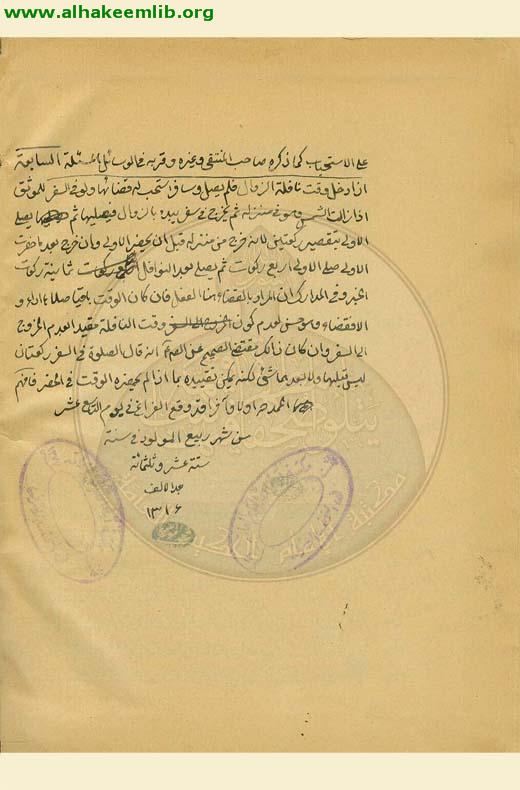 www.alhakeemlib.org
على الاستحباب كما ذكره صاحب المنتقى وغيره وقربه في الوسائل المسئلة السابعة
اذا دخل وقت نافلة الزوال فلم يصل وسافر استحب له قضائها ولو في السفر للموثق
اذا زالت الشمس وهو في منزله ثم يخرج في سفر يبدء بالزوال فيصليها ثم يصلي
الاولى بتقصير ركعتين لانه خرج من منزله قبل ان يحضر الاولى وان خرج بعد ما حضرت
الاولى صلى الاولى اربع ركعات ثم يصلي بعد النوافل ثمانية ركعات
الخبر وفي المدارك ان المراد بالقضاء هنا الفعل فان كان الوقت باقيا صلاها اداء و
الا فقضاء وهو حسن لعدم كون وقت النافلة مقيد العدم الخروج
الى السفر وان كان ذلك مقتضى الصحيح عن الصم انه قال الصلوة في السفر ركعتان
ليس قبلها ولا بعدها شئ لكنه يمكن تقييده بما اذا لم يحضره الوقت في الحضر فافهم
الحمد لله اولا وآخرا قد وقع الفراغ في يوم التاسع عشر
من شهر ربيع المولود في سنة
ستة عشر وثلثمائة
بعد الالف
١٣١٦